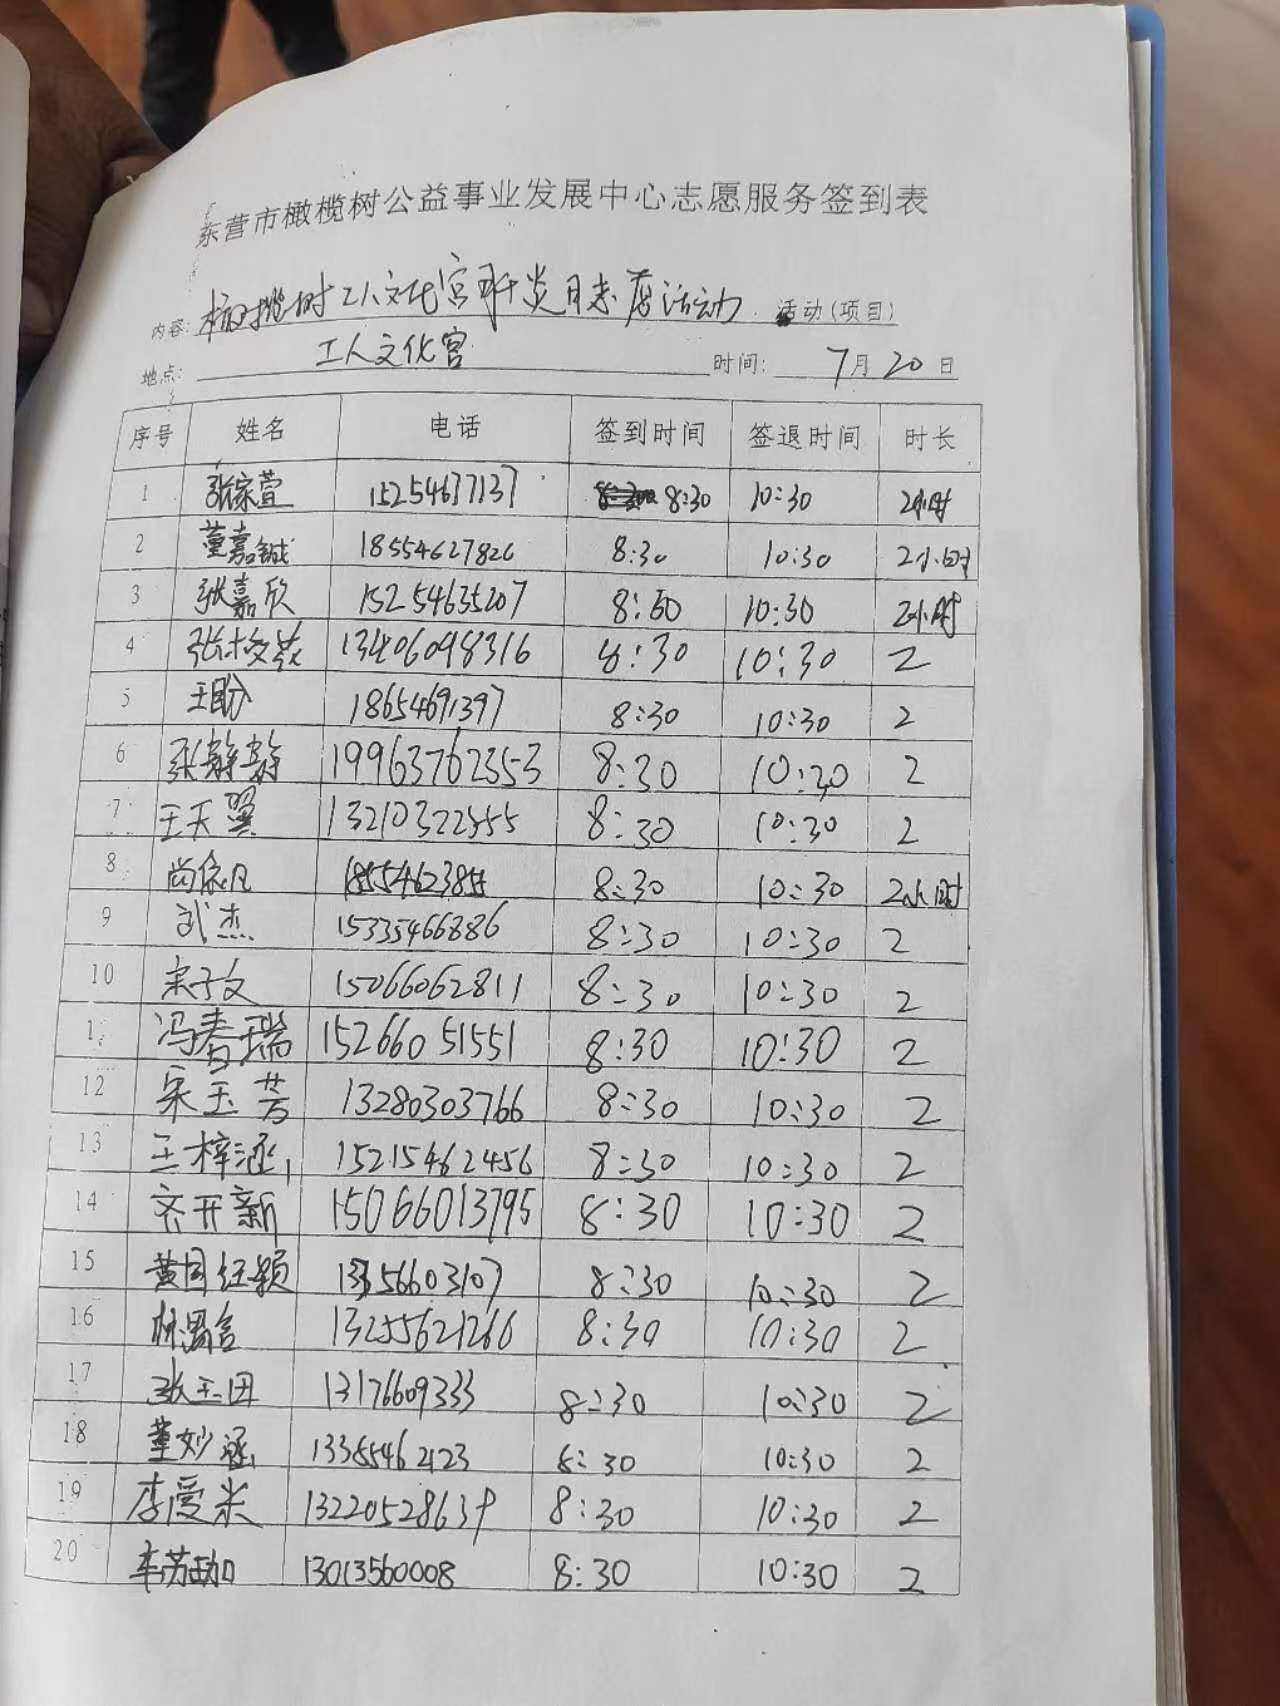 东营市橄榄树公益事业发展中心志愿服务签到表
内容: 橄榄树工人文化宫 志愿活动 活动(项目)
地点: 工人文化宫 时间: 7月20日
序号 姓名 电话 签到时间 签退时间 时长
1 张家萱 15254637137 8:30 10:30 2小时
2 董嘉铖 18554627826 8:30 10:30 2小时
3 张嘉欣 15254635207 8:60 10:30 2小时
4 13406098316 8:30 10:30 2
5 王盼 18654691397 8:30 10:30 2
6 张静静 19963762353 8:30 10:30 2
7 王天翼 13210322555 8:30 10:30 2
8 尚家凡 8:30 10:30 2小时
9 武杰 15335466886 8:30 10:30 2
10 宋子文 15066062811 8:30 10:30 2
1 冯春瑞 15266051551 8:30 10:30 2
12 宋玉芳 13280303766 8:30 10:30 2
13 王梓涵 15215462456 8:30 10:30 2
14 齐开新 15066013795 8:30 10:30 2
15 8:30 10:30 2
16 13255621266 8:30 10:30 2
17 张玉田 13176609333 8:30 10:30 2
18 董妙涵 13385462123 8:30 10:30 2
19 李爱米 13220528639 8:30 10:30 2
20 13013560008 8:30 10:30 2